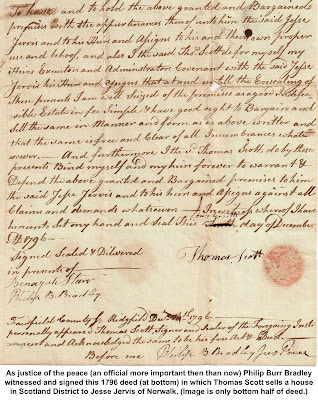 To have and to hold the above granted and Bargained
premises with the appurtenances thereof unto him the said Jesse
Jervis and to his Heirs and Assigns to his and their own proper
use and behoof, and also I the said Thos. Scott do for myself my
Heirs Executors and Administrators Covenant with the said Jesse
Jervis his Heirs and Assigns that at and until the Ensealing of
These presents I am well Seized of the premises as a good Indefea
sible Estate in fee simple & have good right to Bargain and
Sell the same in Manner and form as is above written and
that the same is free and Clear of all Incumbrances whats
soever — And furthermore I the sd. Thomas Scott, do by these
presents Bind myself and my heirs forever to warrant &
Defend the above granted and Bargained premises to him
the said Jesse Jervis and to his heirs and Assigns against all
Claims and demands whatsoever In witness whereof I have
hereunto Set my hand and Seal This day of December
1796
Signed Sealed & Delivered
in presents of Thomas Scott
Benajah Starr
Philip B Bradley
Fairfield County ss. Ridgfield 1796
personally appeared Thomas Scott, Signer and Sealer of the foregoing Instru
ment and Acknowledged the same to be his free Act & Deed
Before me Philip B Bradley Jus Peace
As justice of the peace (an official more important then than now) Philip Burr Bradley
witnessed and signed this 1796 deed (at bottom) in which Thomas Scott sells a house
in Scotland District to Jesse Jervis of Norwalk. (Image is only bottom half of deed.)